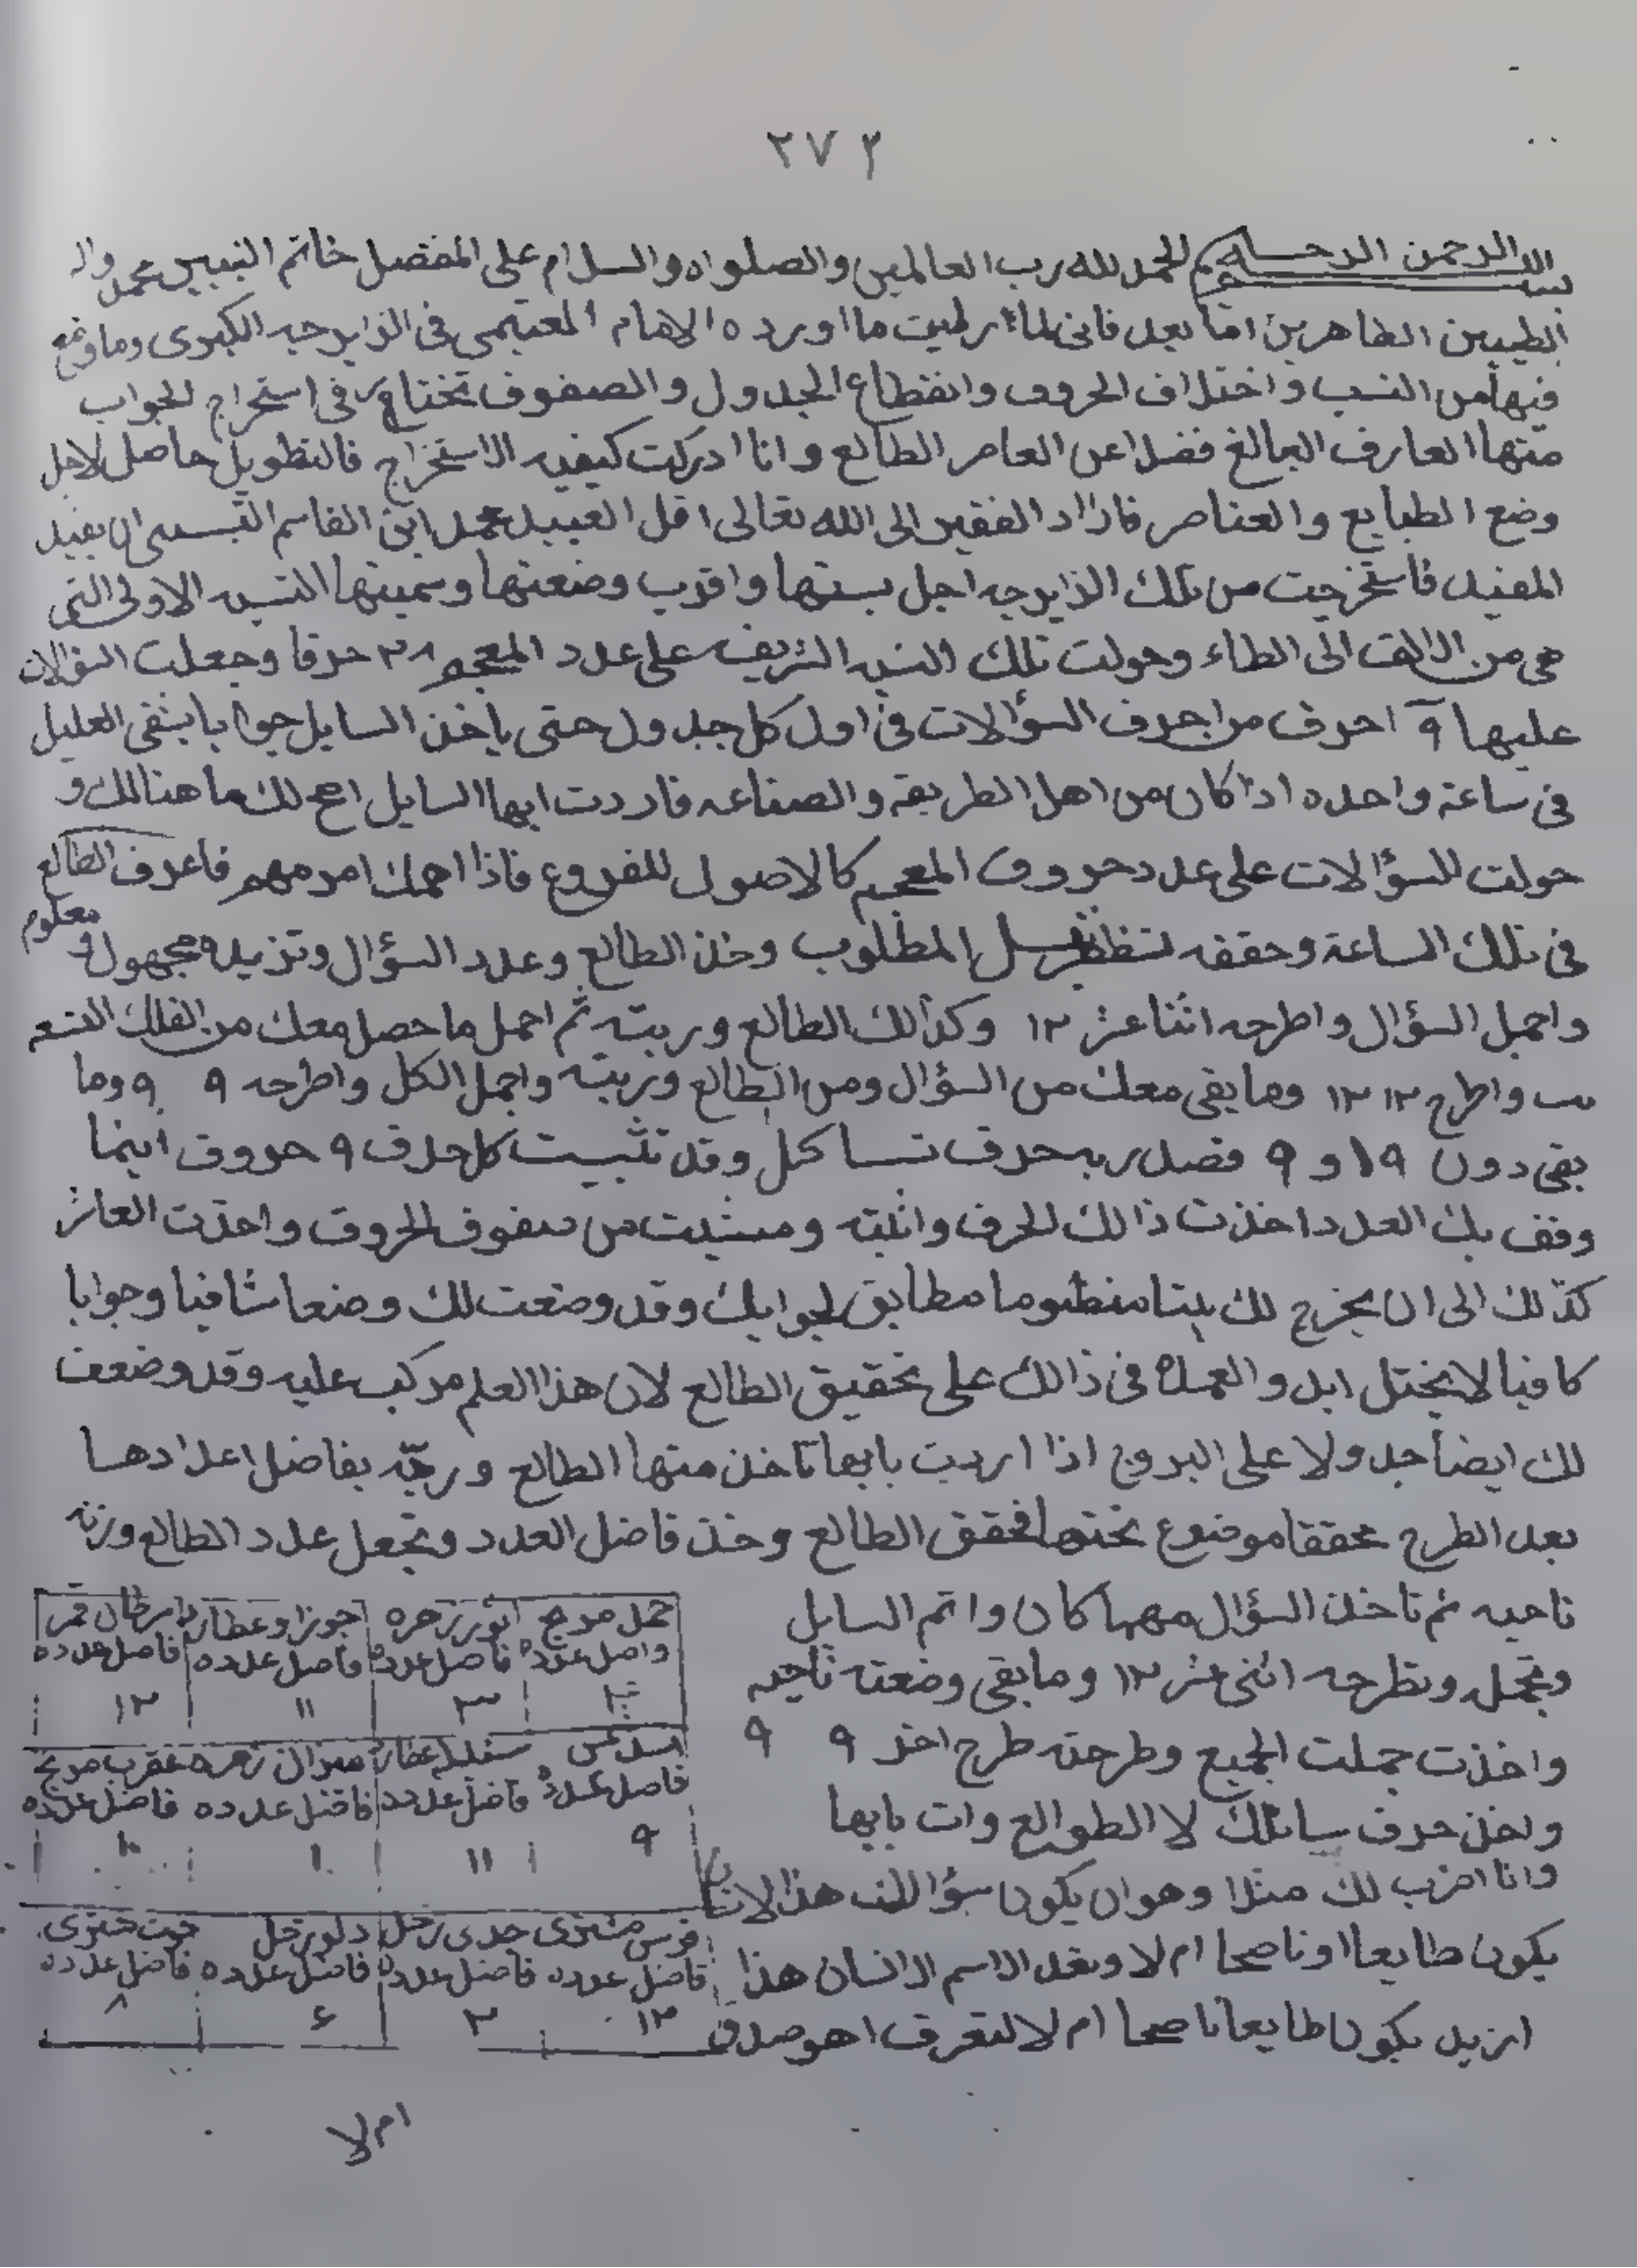 ٢٧٣
بسم الله الرحمن الرحيم الحمد لله رب العالمين والصلواه والسلام على المفضل خاتم النبيين محمد واله
الطيبين الطاهرين اما بعد فانى لما رايت ما اورده الامام فى الزايرجه الكبرى وما وقع
فيها من النسب واختلاف الحروف وانقطاع الجدول والصفوف فى استخراج الجواب
منها العارف البالغ فضلا عن العاصر الطالع وانا ادركت كيفيه الاستخراج فالتطويل حاصل لاجل
وضع الطبايع والعناصر فاراد الفقير الى الله تعالى اقل العبيد محمد ابن القاسم ان يفيد
المفيد فاستخرجت من تلك الزايرجه اجل واقرب وضعتها وسميتها الاولى التى
هى من الالف الى الطاء وحولت تلك الشريف على عدد المعجم ٢٨ حرفا وجعلت السؤالات
عليها ٩ احرف من احرف السؤالات فى اول كل جدول حتى ياخذ السايل جوابا يشفى العليل
فى ساعة واحده اذا كان من اهل الطريقه والصناعه فاردت ايها السايل لك ما هنالك و
حولت للسؤالات على عدد حروف المعجم كالاصول للفروع فاذا اهمك امر مهم فاعرف الطالع
فى تلك الساعة وحققه المطلوب وخذ الطالع وعدد السؤال وتزيد مجهول و معلوم
واجمل السؤال واطرحه اثنا عشر ١٢ وكذالك الطالع وربته ثم اجمل ما حصل معك من الفلك
واطرح ١٢ ١٢ وما بقى معك من السؤال ومن الطالع وربته واجمل الكل واطرحه ٩ ٩ وما
بقى دون ٩ و ٩ فضل به حرف وقد تثبت كل حرف ٩ حروف اينما
وقف بك العدد اخذت ذالك الحرف واثبته ومشيت من صفوف الحروف واخذت العاشر
كذلك الى ان يخرج لك بيتا منظوما مطابق لجوابك وقد وضعت لك وضعا شافيا وجوابا
كافيا لا يختل ابد والعمدة فى ذالك على تحقيق الطالع لان هذا العلم مركب عليه وقد وضعت
لك ايضا جدولا على البروج اذا اردت بابها تاخذ منها الطالع وربّه بفاضل اعدادها
بعد الطرح محققا موضوع تحتها فحقق الطالع وخذ فاضل العدد وتجعل عدد الطالع وربّه
ناحيه ثم تاخذ السؤال مهما كان واتم السايل
وتجمل وتطرحه اثنى عشر ١٢ وما بقى وضعته ناحيه
واخذت جملت الجميع وطرحته طرح اخر ٩ ٩
وتخذ حرف لا الطوالع وات بابها
وانا اضرب لك مثلا وهو ان يكون سؤالك هذا الانسان
يكون طايعا او ناصحا ام لا وتعد الاسم الانسان هذا
ازيد يكون طايعا ناصحا ام لا لتعرف اهو صدق
حمل مريخ ثور زهره جوزا وعطارد سرطان قمر
فاضل عدده فاضل عدده فاضل عدده فاضل عدده
٣ ١١ ١٢
اسد شمس سنبله عطارد ميزان زهره عقرب مريخ
فاضل عدده فاضل عدده فاضل عدده فاضل عدده
٩ ١١
قوس مشترى جدى زحل دلو زحل حوت مشترى
فاضل عدده فاضل عدده فاضل عدده فاضل عدده
١٢ ٢ ٤ ٨
ام لا